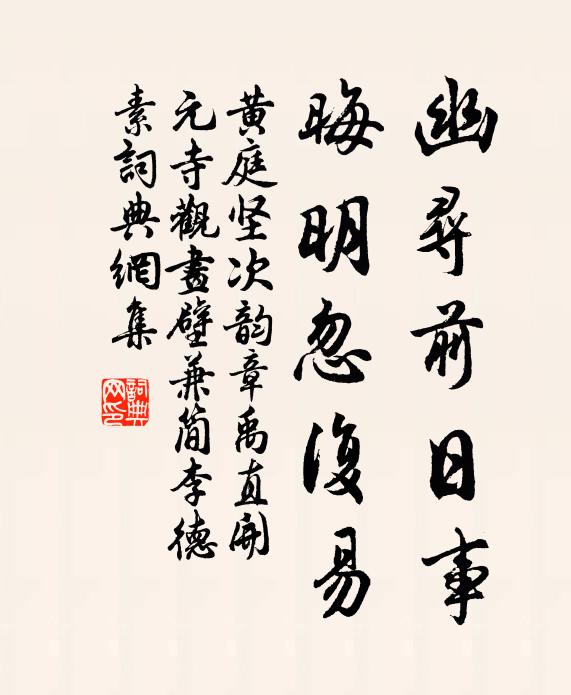 幽尋前日事
晦明忽復易
黄庭坚次韵章禹直開
元寺觀畫壁兼简李德
素詞典網集
詞典网印